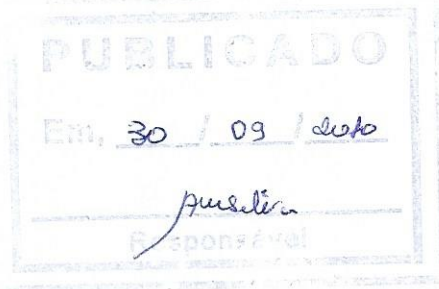 PUBLICADO
Em, 30 / 09 / 2010
Responsável